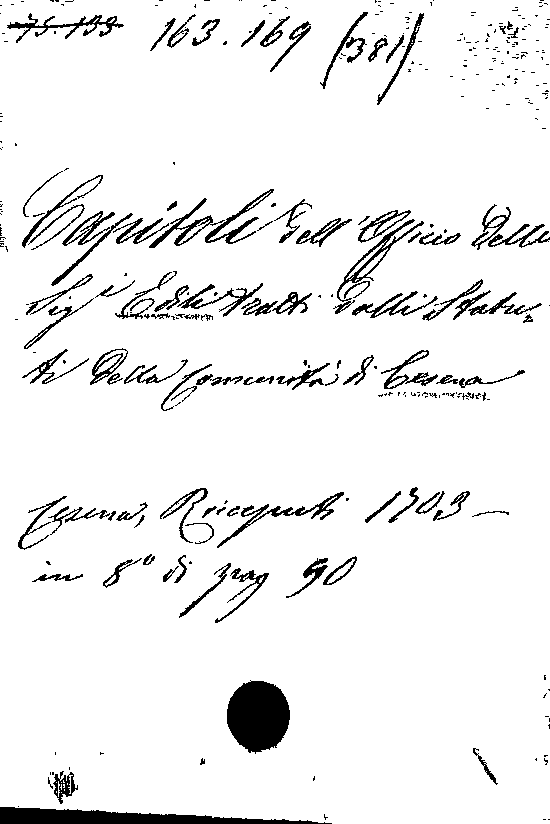 75.133 163.169 (381)
Capitoli dell'Officio delli
Sigi Edili tratti dalli Statu-
ti della Comunità di Cesena
Cesena, Ricceputi 1703 —
in 8º di pag 90